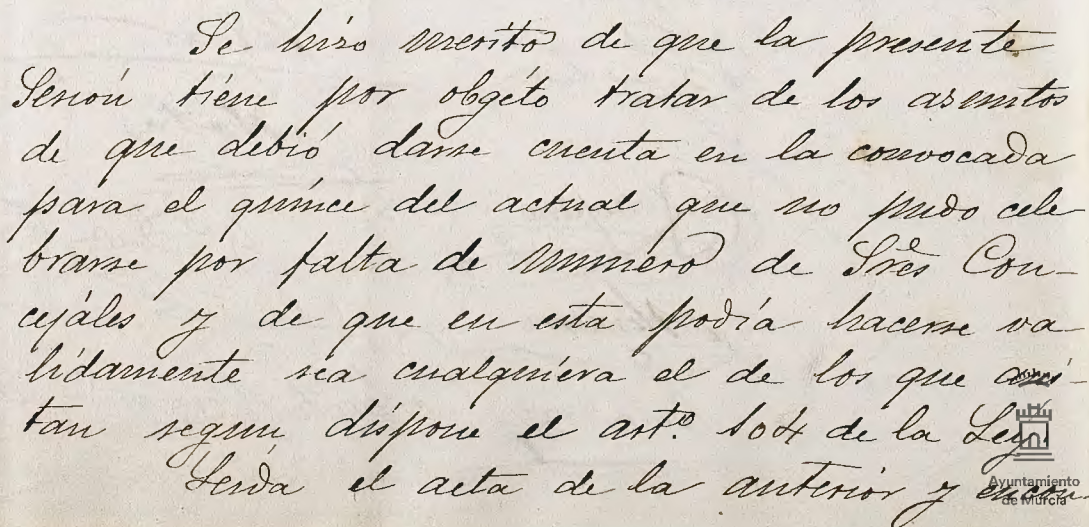 Se hizo merito de que la presente
Sesión tiene por obgéto tratar de los asuntos
de que debió darse cuenta en la convocada
para el quince del actual que no pudo cele
brarse por falta de número de Sres Con-
cejáles y de que en esta podía hacerse va
lidamente sea cualquiera el de los que asis-
tan segun dispone el artº. 104 de la Ley.
Leida el acta de la anterior y encon
Ayuntamiento
de Murcia